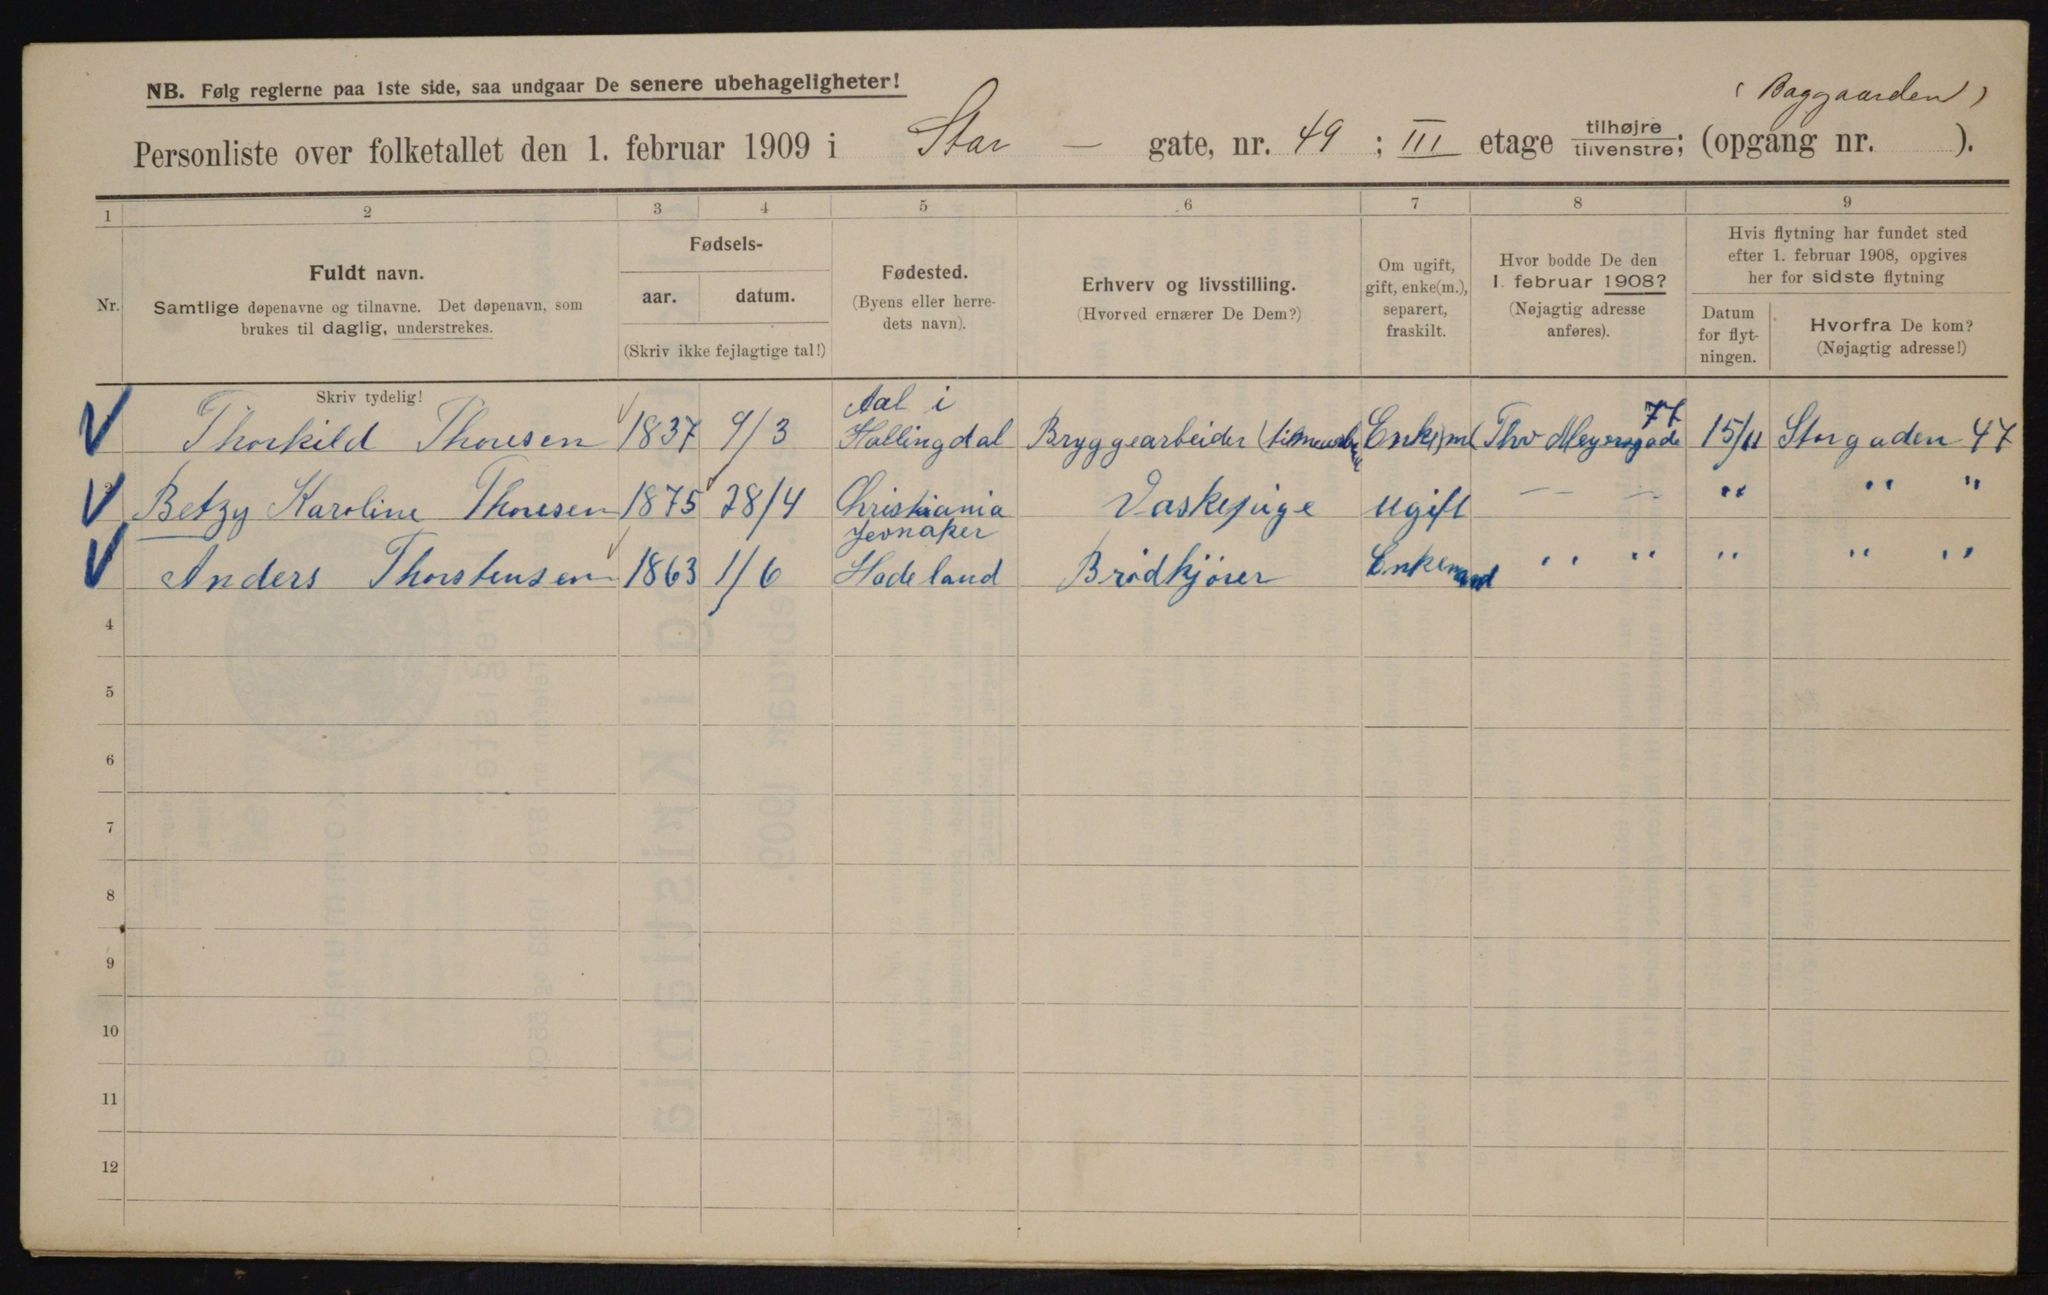 NB. Følg reglerne paa 1ste side, saa undgaar De senere ubehageligheter!
( Baggaarden )
Personliste over folketallet den 1. februar 1909 i Stor — gate, nr. 49 ; III etage tilhøjre tilvenstre; (opgang nr. ).
1 2 3 4 5 6 7 8 9
Nr.
Fuldt navn.
Samtlige døpenavne og tilnavne. Det døpenavn, som
brukes til daglig, understrekes.
Fødsels-
aar. datum.
(Skriv ikke fejlagtige tal!)
Fødested.
(Byens eller herre-
dets navn).
Erhverv og livsstilling.
(Hvorved ernærer De Dem?)
Om ugift,
gift, enke(m.),
separert,
fraskilt.
Hvor bodde De den
1. februar 1908?
(Nøjagtig adresse
anføres).
Hvis flytning har fundet sted
efter 1. februar 1908, opgives
her for sidste flytning
Datum
for flyt-
ningen.
Hvorfra De kom?
(Nøjagtig adresse!)
Skriv tydelig!
Aal i
Thorkild Thoresen 1837 9/3 Hallingdal Bryggearbeider Enke m Thv Meyersgade 77 15/11 Storgaden 47
2 Betzy Karoline Thoresen 1875 28/4 Christiania Vaskepige ugift — — — " " "
Jevnaker
Anders Thorstensen 1863 1/6 Hadeland Brødkjører Enkemand " " " " "
4
5
6
7
8
9
10
11
12